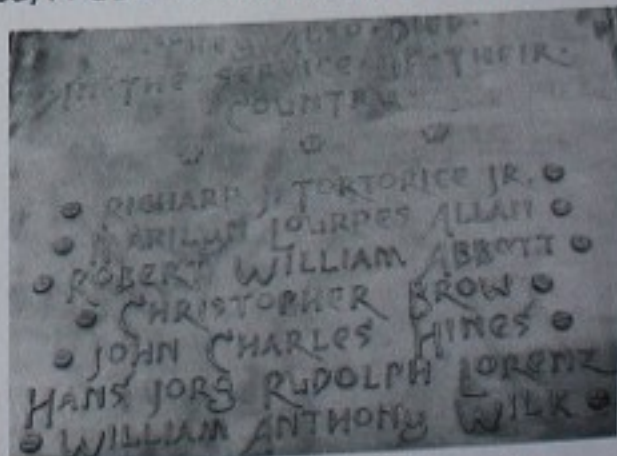 They Also Died
In The Service of Their
Country
Richard J. Tortorice Jr.
Marilyn Lourdes Allan
Robert William Abbott
Christopher Brow
John Charles Hines
Hans Jorg Rudolph Lorenz
William Anthony Wilk